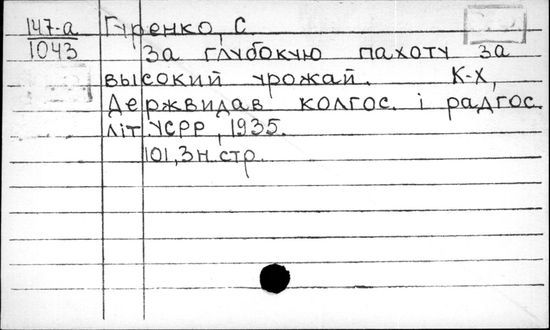 147-а Гуренко, С
1043 За глубокую пахоту за
высокий урожай. К-Х,
Держвидав колгос. і радгос.
літ УСРР, 1935.
101, 3 н. стр.